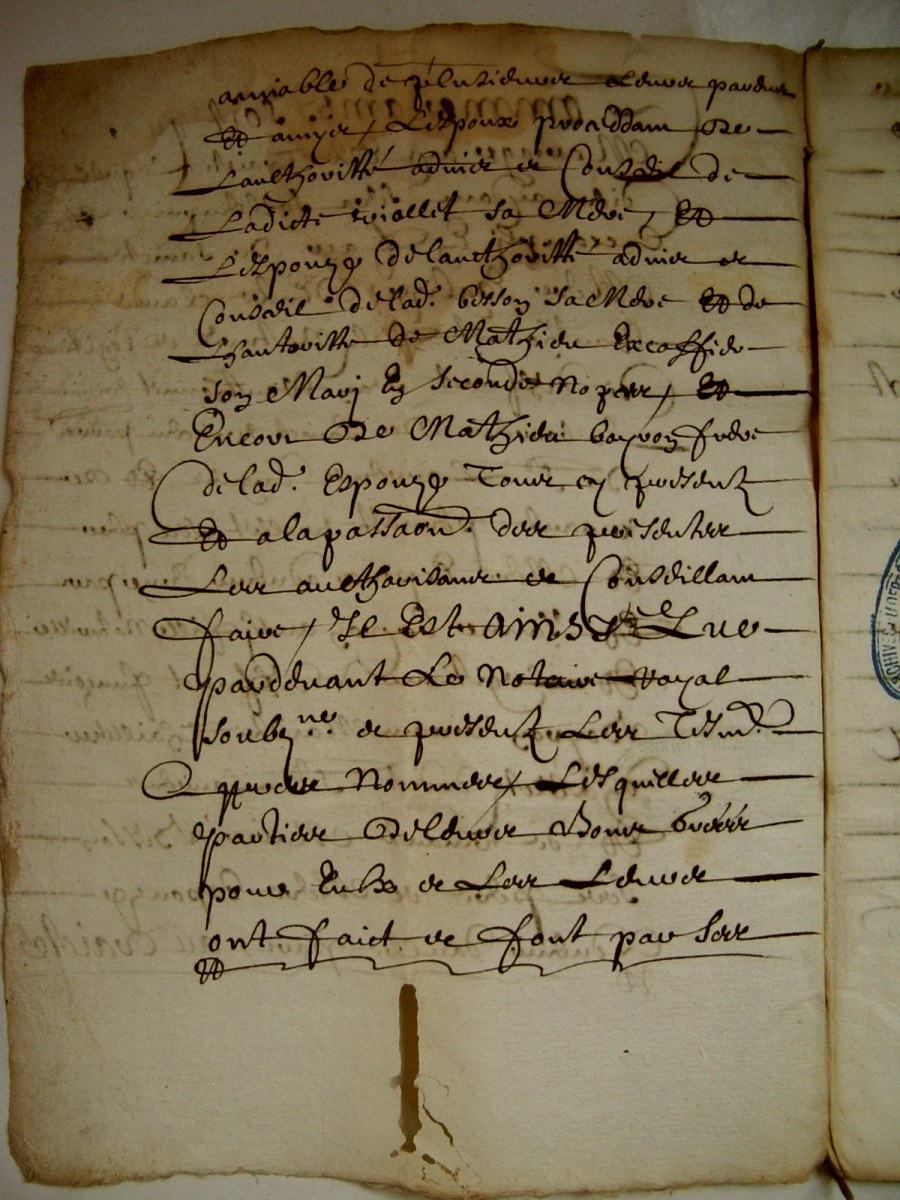 amiable de plusieurs Leurs parens
Et amys, L'espoux proceddam De
Lauthoritté advis et Conseil de
Ladicte viollet sa Mere, Et
L'espouze de lauthoritté advis et
Conseil de lad. besson sa Mere Et de
Lhautoritté de Mathieu Excoffier
son Mary En secondes nopces, Et
Encour De Mathieu bayron frere
de lad. Espouze Tous cy present
Et a la passaon. des presentes
Les aucthorisans et Conseillam
faire, Je Est ainsy que
pardevant Le Notaire Royal
soubzne. et present Les Tesm.
apres Nommes, Lesquelles
parties De leurs Bons grés
pour Eulx et Les Leurs
ont faict et font par ses
Et